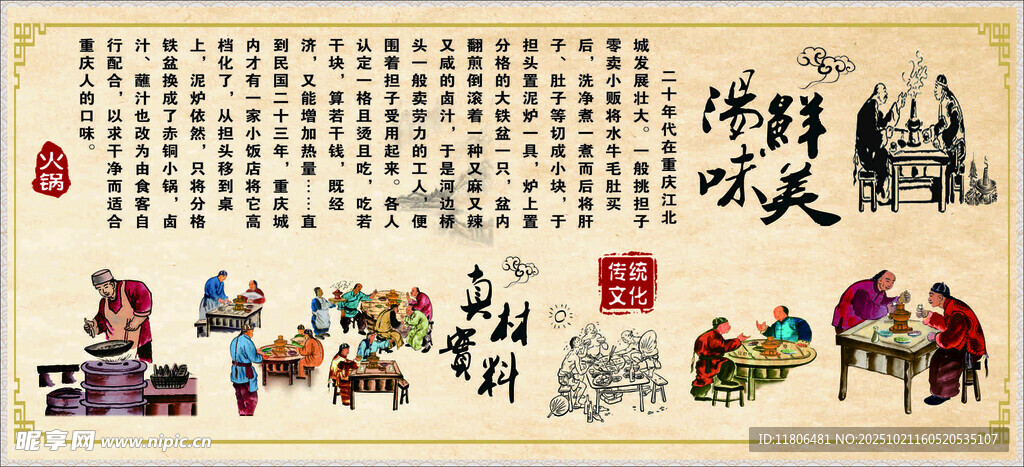 湯鮮
味美
二十年代在重庆江北
城发展壮大。一般挑担子
零卖小贩将水牛毛肚买
后，洗净煮一煮而后将肝
子、肚子等切成小块，于
担头置泥炉一具，炉上置
分格的大铁盆一只，盆内
翻煎倒滚着一种又麻又辣
又咸的卤汁，于是河边桥
头一般卖劳力的工人，便
围着担子受用起来。各人
认定一格且烫且吃，吃若
干块，算若干钱，既经
济，又能增加热量……直
到民国二十三年，重庆城
内才有一家小饭店将它高
档化了，从担头移到桌
上，泥炉依然，只将分格
铁盆换成了赤铜小锅，卤
汁、蘸汁也改为由食客自
行配合，以求干净而适合
重庆人的口味。
火锅
传统
文化
真材
實料
昵享网 www.nipic.cn
ID:11806481 NO:20251021160520535107